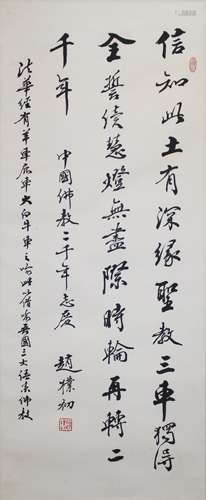 信知此土有深緣聖教三車獨得
全誓續慧燈無盡際時輪再轉二
千年 中國佛教二千年志慶 趙樸初
法華經有羊車鹿車大白牛車之喻此借為吾國三大語系佛教